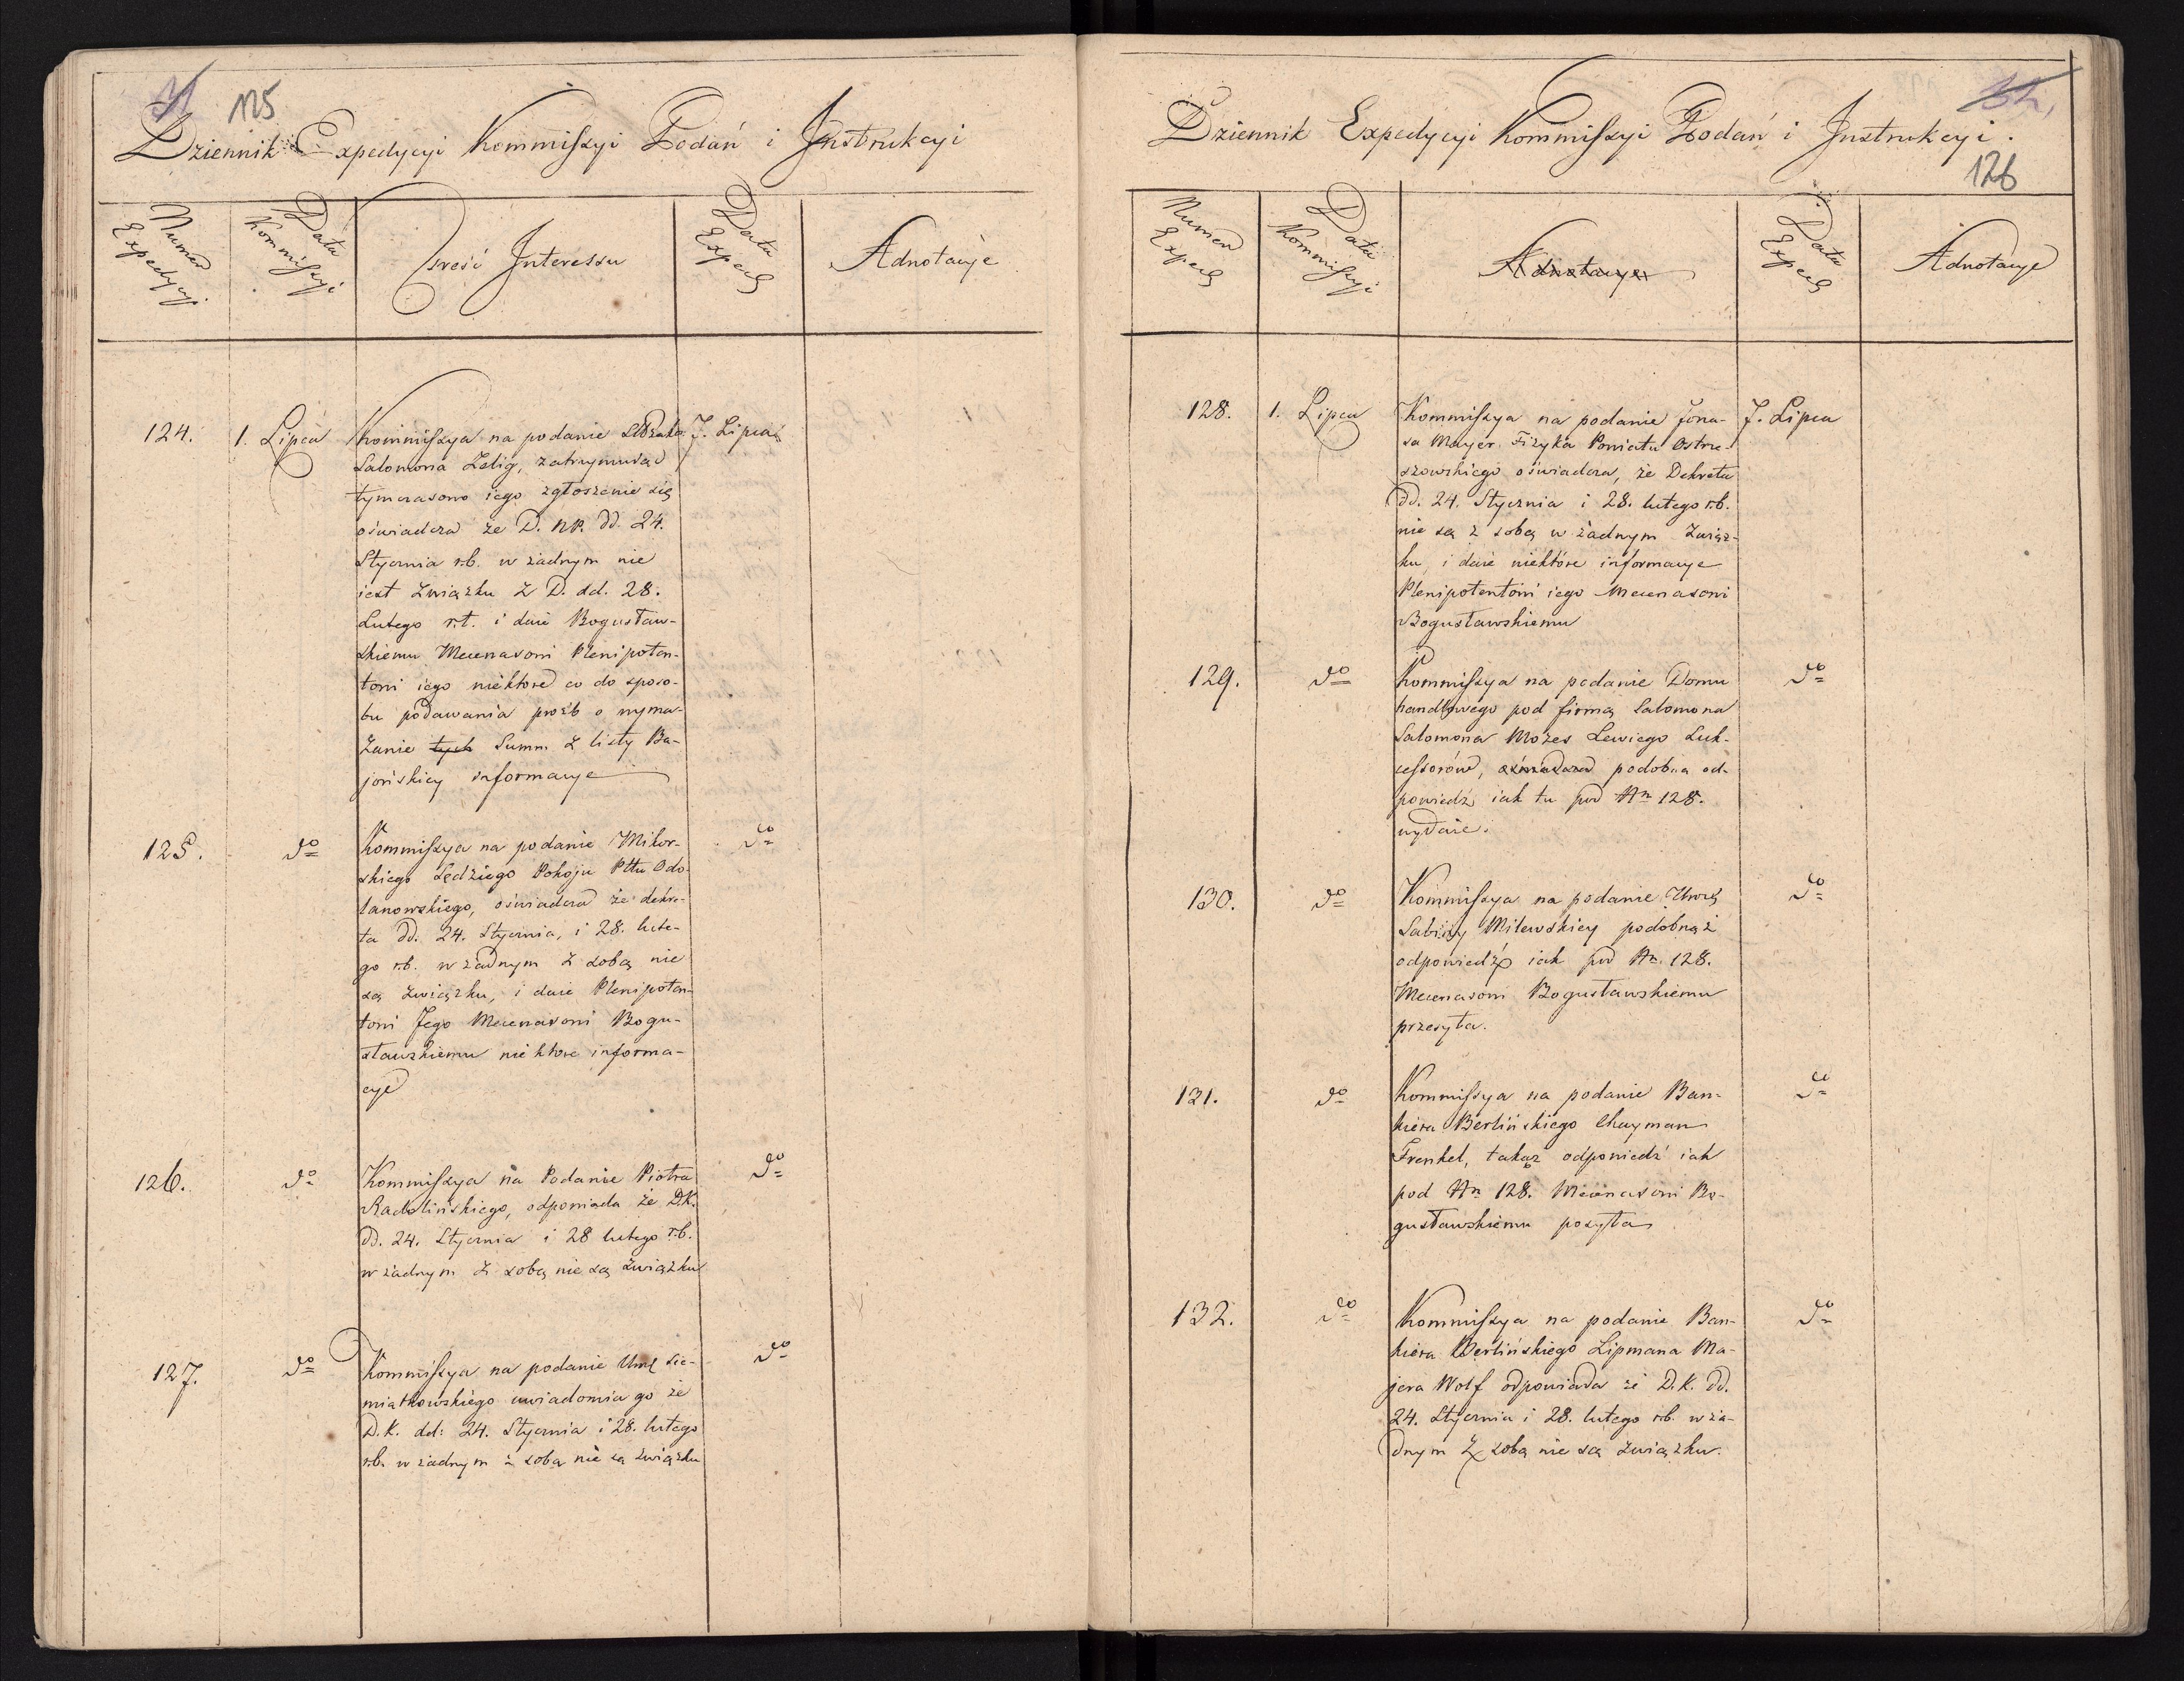 125
Dziennik Expedycyi Kommiſsyi Podań i Instrukcyi
Numer Expedycyi
Data Kommiſsyi
Treść Interessu
Data Exped
Adnotacye
124. 1. Lipca Kommiſsya na podanie 7. Lipca
Salomona Zelig, zatrzymuiąc
tymczasowo iego zgłoszenie się
oświadcza że D. NP. dd. 24.
Stycznia r.b. w żadnym nie
iest Związku z D. dd. 28.
Lutego r.t. i daie Bogusław-
skiemu Mecenasowi Plenipoten-
towi iego niektóre co do sposo-
bu podawania proźb o wyma-
zanie tych Summ z listy Ba-
jońskiey informacye
125. do Kommiſsya na podanie Mikor- do
skiego Sędziego Pokoju Pttu Odo-
lanowskiego, oświadcza że dekre-
ta dd. 24. Stycznia, i 28. lute-
go r.b. w żadnym z sobą nie
są związku, i daie Plenipoten-
towi Jego Mecenasowi Bogu-
sławskiemu niektore informa-
cye
126. do Kommiſsya na Podanie Piotra do
Radolińskiego, odpowiada że D.K.
dd. 24. Stycznia i 28 lutego r.b.
w żadnym z sobą nie są związku
127. do Kommiſsya na podanie Sie- do
miatkowskiego uwiadomia go że
D.K. dd: 24. Stycznia i 28. lutego
r.b. w żadnym z sobą nie są związku
Dziennik Expedycyi Kommiſsyi Podań i Instrukcyi.
126
Numer Exped
Data Kommiſsyi
Adnotacye
Data Exped
Adnotacye
128. 1. Lipca Kommiſsya na podanie Jona- 7. Lipca
sa Mayer Fizyka Powiatu Ostrze-
szowskiego oświadcza, że Dekreta
dd. 24. Stycznia i 28. lutego r.b.
nie są z sobą w żadnym Związ-
ku, i daie niektóre informacye
Plenipotentowi iego Mecenasowi
Bogusławskiemu
129. do Kommiſsya na podanie Domu do
handlowego pod firmą Salomona
Salomona Mozes Lewiego Suk-
ceſsorów, oświadcza podobną od-
powiedź iak tu pod Nr 128.
wydaie.
130. do Kommiſsya na podanie do
Sabiny Milewskiey podobnąż
odpowiedź iak pod Nr. 128.
Mecenasowi Bogusławskiemu
przesyła.
131. do Kommiſsya na podanie Ban- do
kiera Berlińskiego Chayman
Frenkel, takąz odpowiedź iak
pod Nr 128. Mecenasowi Bo-
gusławskiemu posyła
132. do Kommiſsya na podanie Ban- do
kiera Berlińskiego Lipmana Ma-
jera Wolf odpowiada że D.K. dd.
24. Stycznia i 28. lutego r.b. w ża-
dnym z sobą nie są związku.